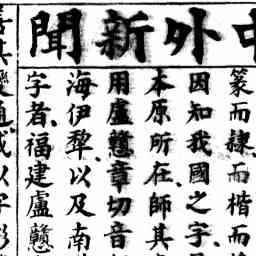 中外新聞
篆而隸、而楷而
因知我國之字、
本原所在、師其
用盧戇章切音
海伊犂、以及南
字者、福建盧戇
其變通、或以字形